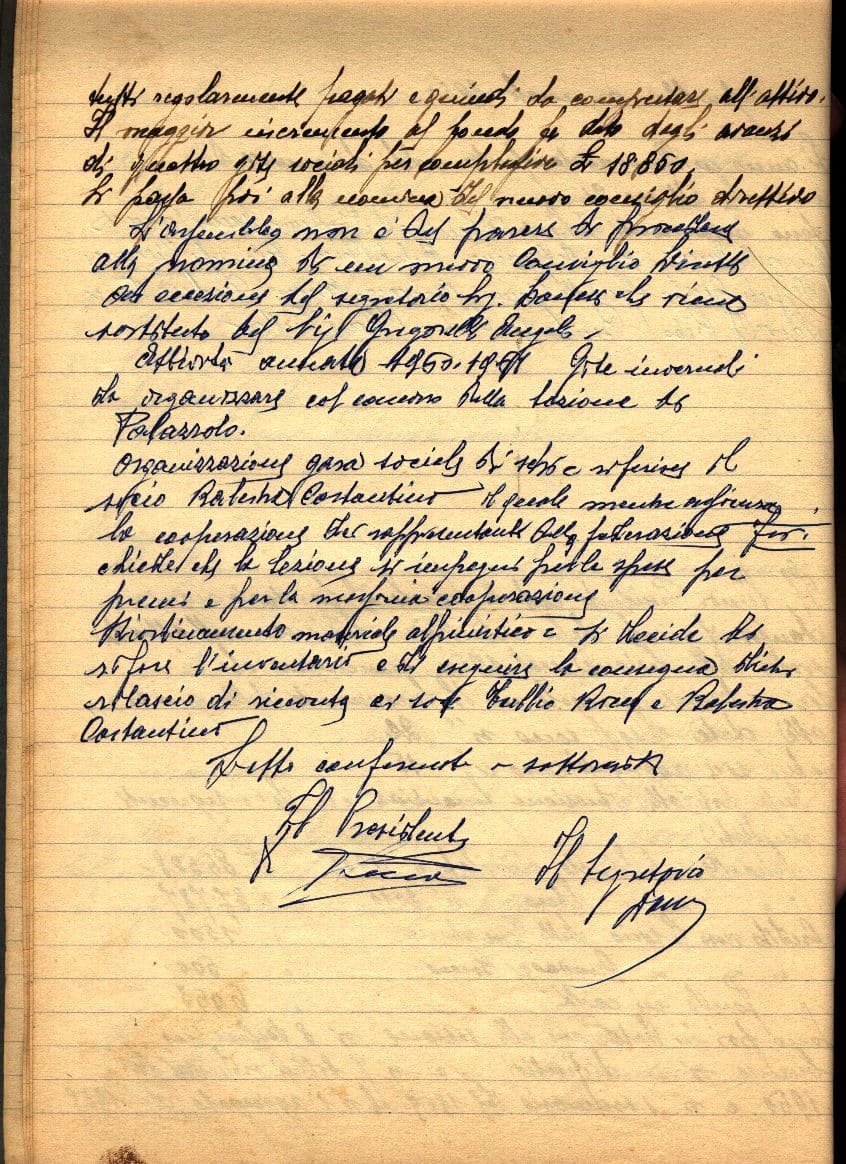 tutti regolarmente pagati e quindi da computare all'attivo.
Il maggior incremento al fondo fu dato dagli avanzi
di quattro gite sociali per complessive £ 18850.
Si passa poi alla nomina del nuovo consiglio direttivo
L'assemblea non è del parere di procedere
alla nomina di un nuovo Consiglio Dirett
ad eccezione del segretario che viene
sostituito dal Sig. Grigorelli Angelo
Attività annata 1950-1951 Gite invernali
da organizzare col concorso della Sezione di
Palazzolo.
Organizzazione gara sociale di sci riferisce il
socio Ratestra Costantino il quale mentre
la cooperazione dei rappresentanti della federazione
chiede che la Sezione si impegni per le spese per
premi e per la massima cooperazione
Riordinamento materiale alpinistico si decide di
rifare l'inventario e di eseguire la consegna dietro
rilascio di ricevuta ai soci Tullio Rocco e Ratestra
Costantino
Letto confermato e sottoscritto
Il Presidente
Il Segretario